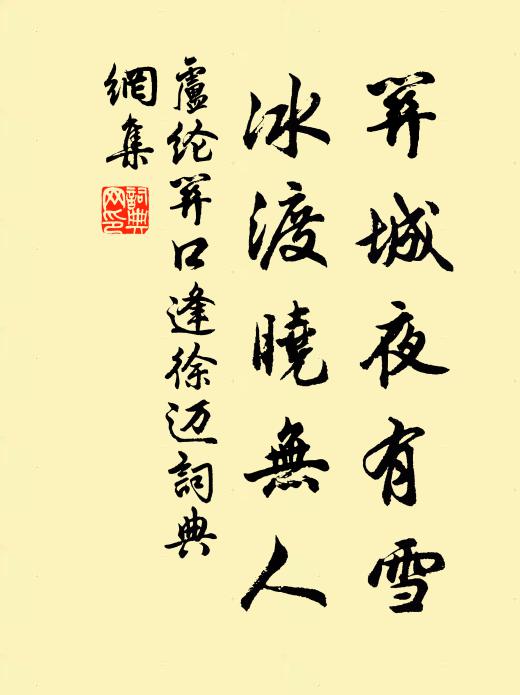 關城夜有雪
冰渡曉無人
盧纶關口逢徐迈詞典
網集
詞典
网印